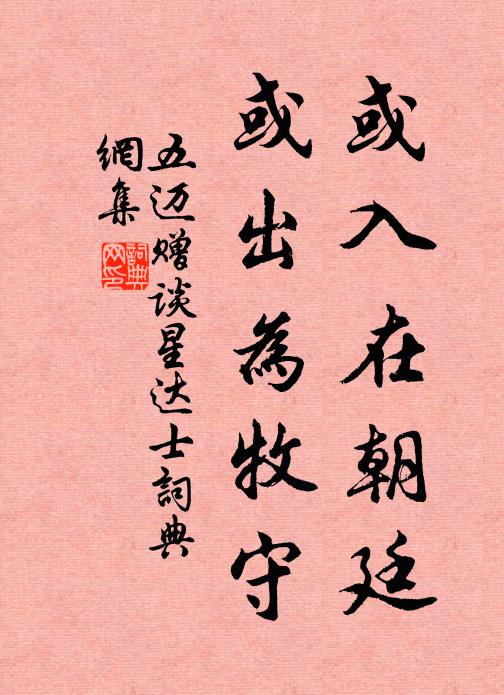 或入在朝廷
或出為牧守
五迈赠谈星达士詞典
網集
詞典
网印